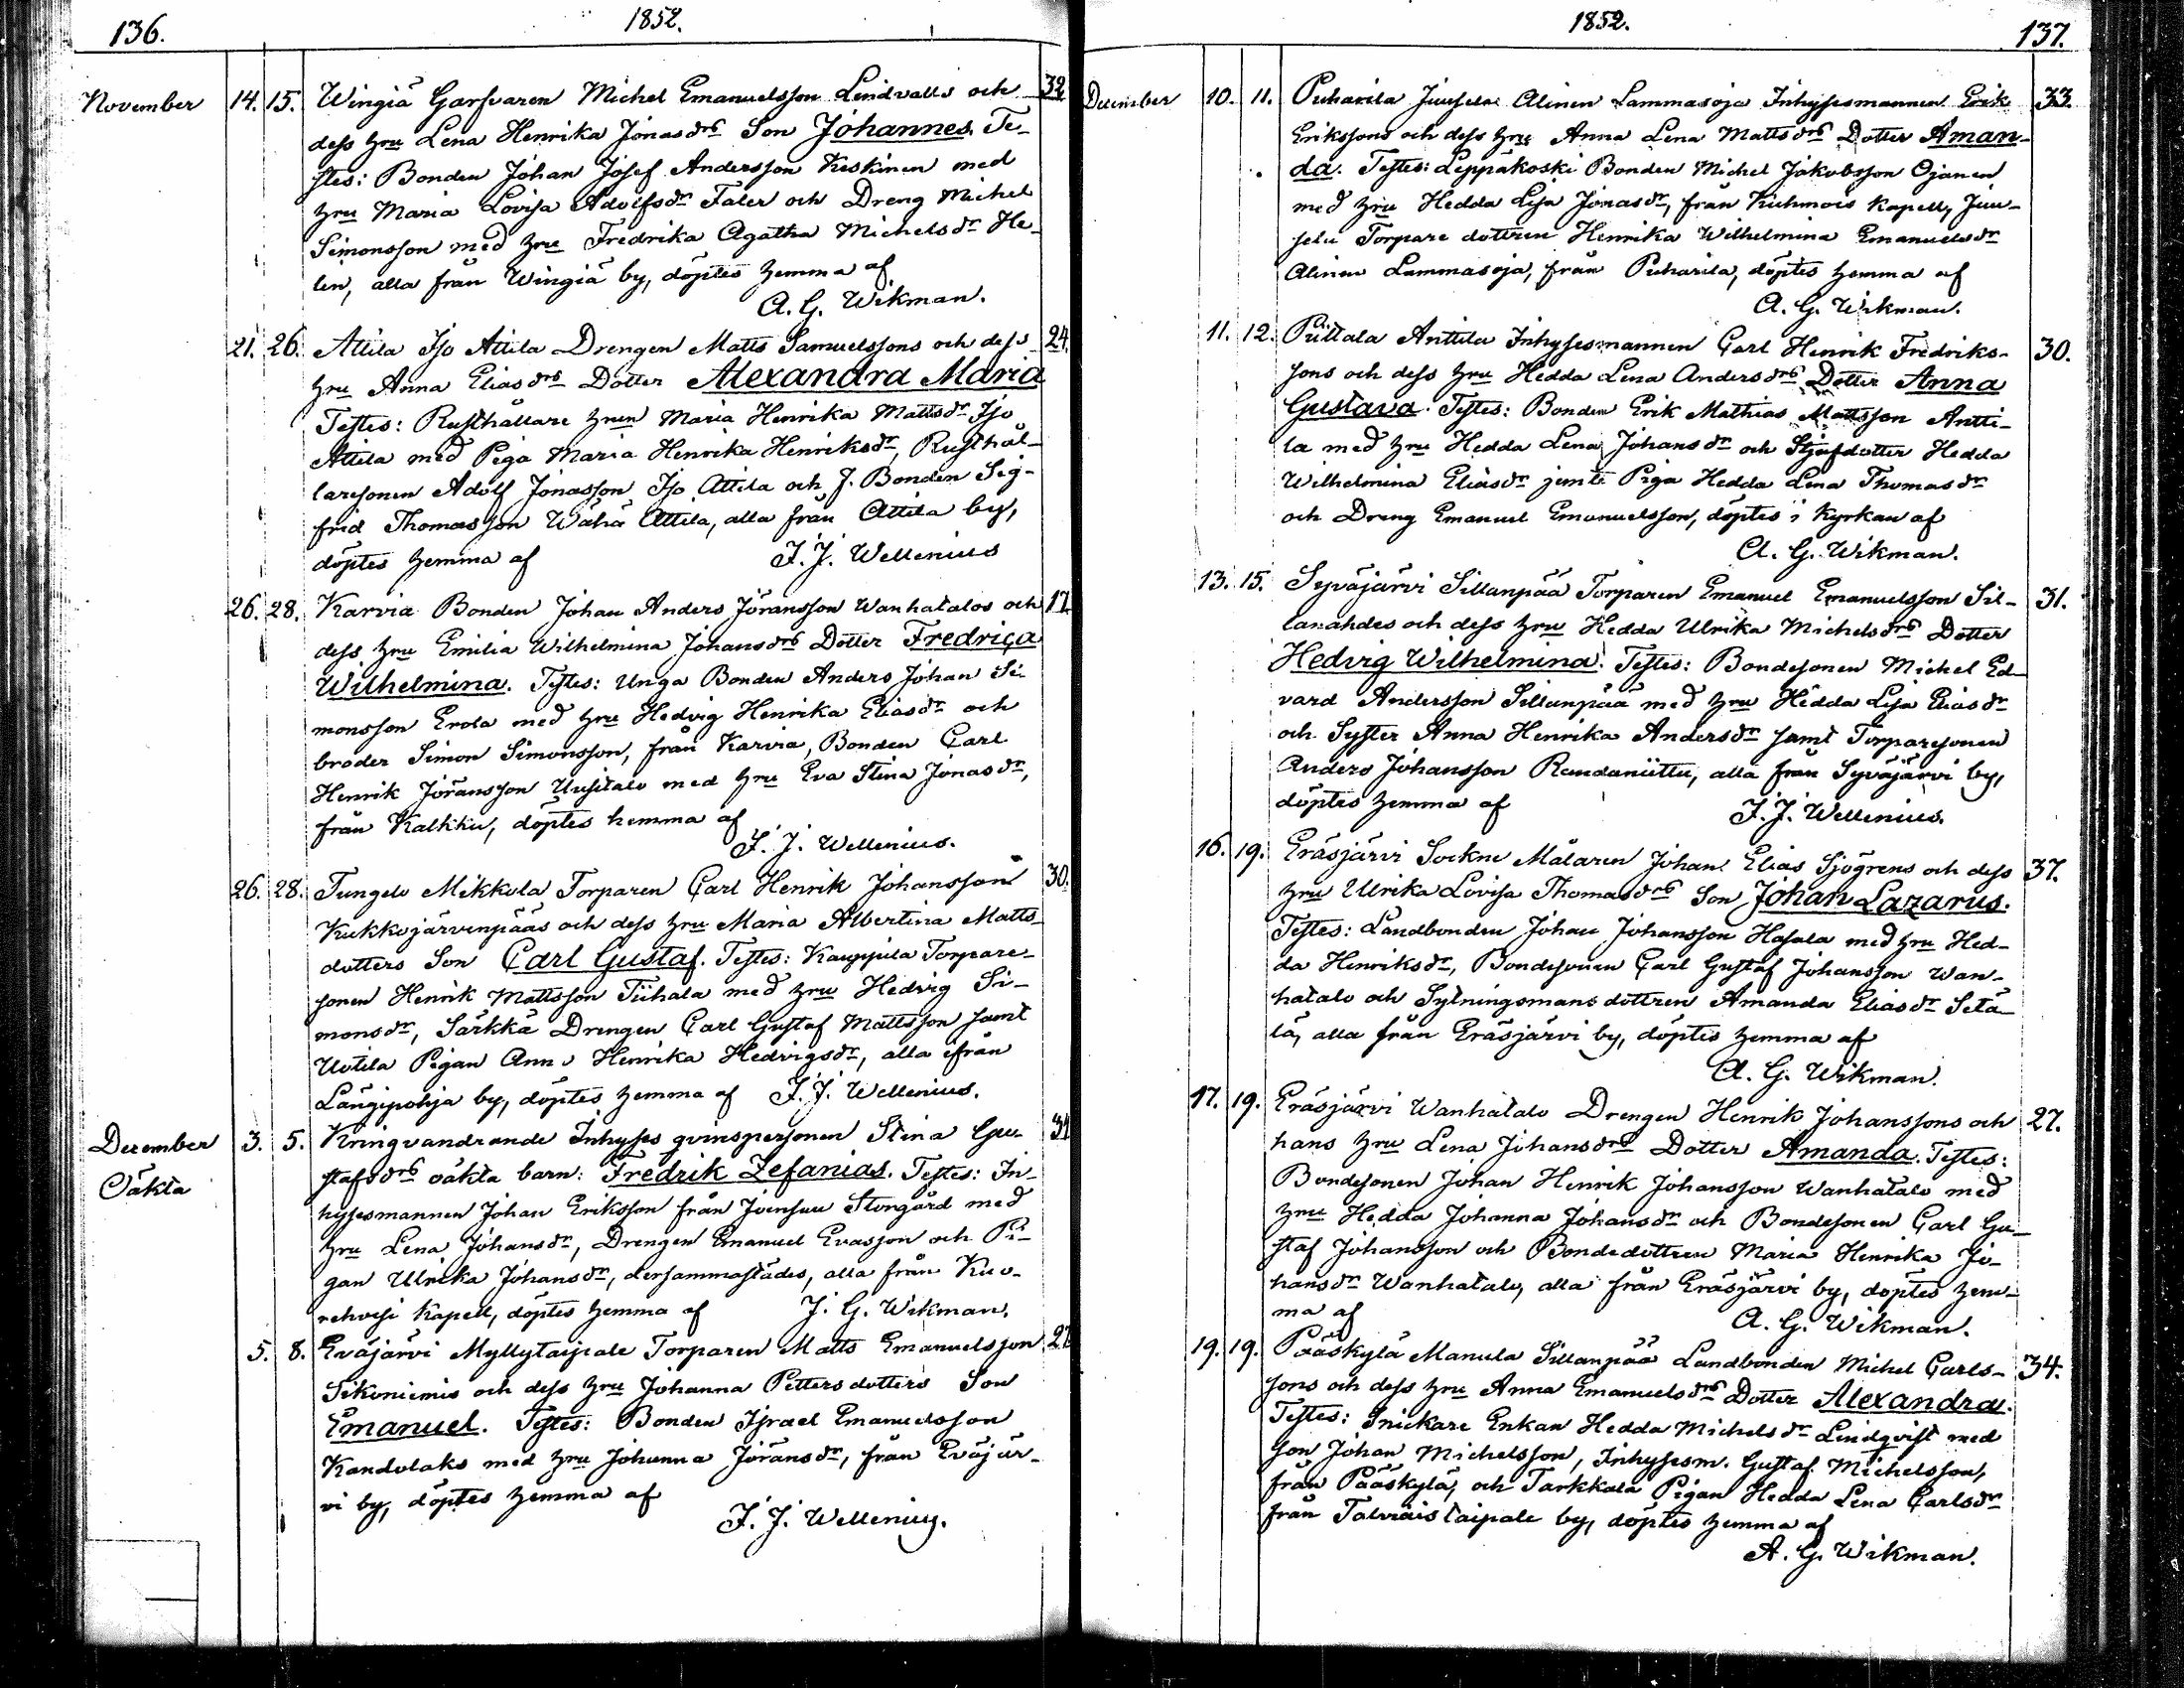 136.
1852.
November 14. 15. Wingiä Garfvaren Michel Emanuelsson Lindvalls och 32
dess hru Lena Henrika Jonasdrs Son Johannes. Te-
stes: Bonden Johan Josef Andersson Keskinen med
hru Maria Lovisa Adolfsdr Faler och Dreng Michel
Simonsson med hru Fredrika Agatha Michelsdr He-
len, alla från Wingiä by, döptes hemma af
A. G. Wikman.
21. 26. Attila Iso Attila Drengen Matts Samuelssons och dess 24.
hru Anna Eliasdrs Dotter Alexandra Maria
Testes: Rusthållare hrun Maria Henrika Mattsdr Iso
Attila med Piga Maria Henrika Henriksdr, Rusthål-
laresonen Adolf Jonasson Iso Attila och f. Bonden Sig-
frid Thomasson Wähä Attila, alla från Attila by,
döptes hemma af F. J. Wellenius
26. 28. Karvia Bonden Johan Anders Jöransson Wanhatalos och 17
dess hru Emilia Wilhelmina Johansdrs Dotter Fredrica
Wilhelmina. Testes: Unga Bonden Anders Johan Si-
monsson Erola med hru Hedvig Henrika Eliasdr och
broder Simon Simonsson, från Karvia, Bonden Carl
Henrik Jöransson Uusitalo med hru Eva Stina Jonasdr,
från Kalkku, döptes hemma af
F. J. Wellenius.
26. 28. Tungelo Mikkola Torparen Carl Henrik Johansson 30.
Kukkojärvenpääs och dess hru Maria Albertina Matts-
dotters Son Carl Gustaf. Testes: Kauppila Torpare-
sonen Henrik Mattsson Tiihala med hru Hedvig Si-
monsdr, Särkkä Drengen Carl Gustaf Mattsson samt
Uotila Pigan Anna Henrika Hedvigsdr, alla ifrån
Längipohja by, döptes hemma af F. J. Wellenius.
December 3. 5. Kringvandrande Inhyses qvinspersonen Stina Gu- 31
Oäkta stafsdrs oäkta barn: Fredrik Zefanias. Testes: In-
hysesmannen Johan Eriksson från Joensuu Storgård med
hru Lena Johansdr, Drengen Emanuel Evasson och Pi-
gan Ulrika Johansdr, dersammastädes, alla från Kuo-
rehvesi Kapell, döptes hemma af J. G. Wikman.
5. 8. Eväjärvi Myllytaipale Torparen Matts Emanuelsson 27
Sikoniemis och dess hru Johanna Pettersdotters Son
Emanuel. Testes: Bonden Israel Emanuelsson
Kandolaks med hru Johanna Jöransdr, från Eväjär-
vi by, döptes hemma af
F. J. Wellenius.
1852.
137.
December 10. 11. Puharila Juusela Alinen Lammasoja Inhysesmannen Erik 33.
Erikssons och dess hru Anna Lena Mattsdrs Dotter Aman-
da. Testes: Leppäkoski Bonden Michel Jakobsson Ojanen
med hru Hedda Lisa Jonasdr, från Kuhmois Kapell, Juu-
sela Torpare dottren Henrika Wilhelmina Emanuelsdr
Alinen Lammasoja, från Puharila, döptes hemma af
A. G. Wikman.
11. 12. Piittala Anttila Inhysesmannen Carl Henrik Fredriks- 30.
sons och dess hru Hedda Lena Andersdrs Dotter Anna
Gustava. Testes: Bonden Erik Mathias Mattsson Antti-
la med hru Hedda Lena Johansdr och Stjufdotter Hedda
Wilhelmina Eliasdr jemte Piga Hedda Lena Thomasdr
och Dreng Emanuel Emanuelsson, döptes i Kyrkan af
A. G. Wikman.
13. 15. Syväjärvi Sillanpää Torparen Emanuel Emanuelsson Sil- 31.
lanahdes och dess hru Hedda Ulrika Michelsdrs Dotter
Hedvig Wilhelmina. Testes: Bondesonen Michel Ed-
vard Andersson Sillanpää med hru Hedda Lisa Eliasdr
och Syster Anna Henrika Andersdr samt Torparesonen
Anders Johansson Raudaniittu, alla från Syväjärvi by,
döptes hemma af F. J. Wellenius.
16. 19. Eräsjärvi Sockne Målaren Johan Elias Sjögrens och dess 37.
hru Ulrika Lovisa Thomasdrs Son Johan Lazarus.
Testes: Landbonden Johan Johansson Hasala med hru Hed-
da Henriksdr, Bondesonen Carl Gustaf Johansson Wan-
hatalo och Sytningsmans dottren Amanda Eliasdr Setä-
lä, alla från Eräsjärvi by, döptes hemma af
A. G. Wikman.
17. 19. Eräsjärvi Wanhatalo Drengen Henrik Johanssons och 27.
hans hru Lena Johansdrs Dotter Amanda. Testes:
Bondesonen Johan Henrik Johansson Wanhatalo med
hru Hedda Johanna Johansdr och Bondesonen Carl Gu-
staf Johansson och Bondedottren Maria Henrika Jo-
hansdr Wanhatalo, alla från Eräsjärvi by, döptes hem-
ma af A. G. Wikman.
19. 19. Pääskylä Manula Sillanpää Landbonden Michel Carls- 34.
sons och dess hru Anna Emanuelsdrs Dotter Alexandra.
Testes: Snickare Enkan Hedda Michelsdr Lindqvist med
son Johan Michelsson, Inhysesm. Gustaf Michelsson,
från Pääskylä, och Tarkkala Pigan Hedda Lena Carlsdr
från Talviaistaipale by, döptes hemma af
A. G. Wikman.